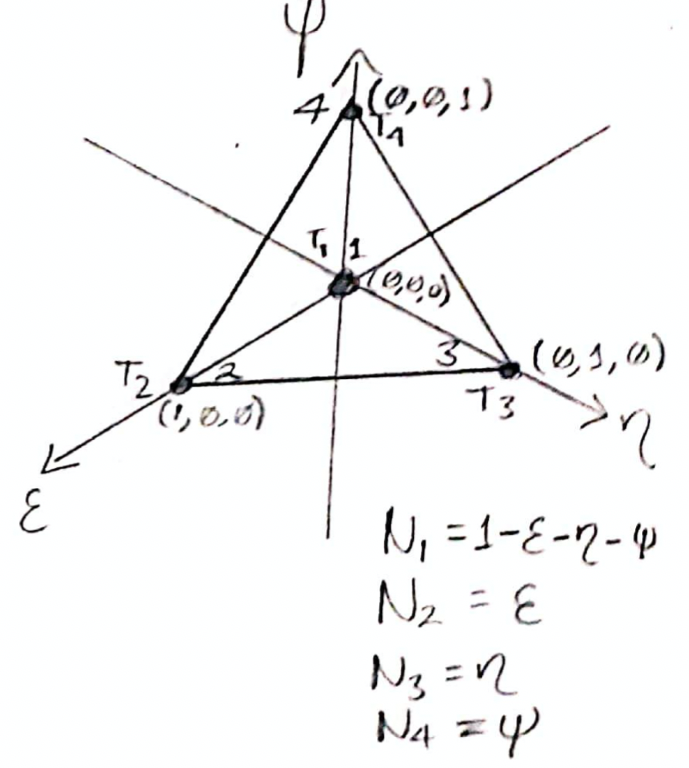 ψ
4 (0,0,1)
T4
T1 1
(0,0,0)
T2 2
3 (0,1,0)
(1,0,0)
T3
η
ε
N1 = 1-ε-η-ψ
N2 = ε
N3 = η
N4 = ψ